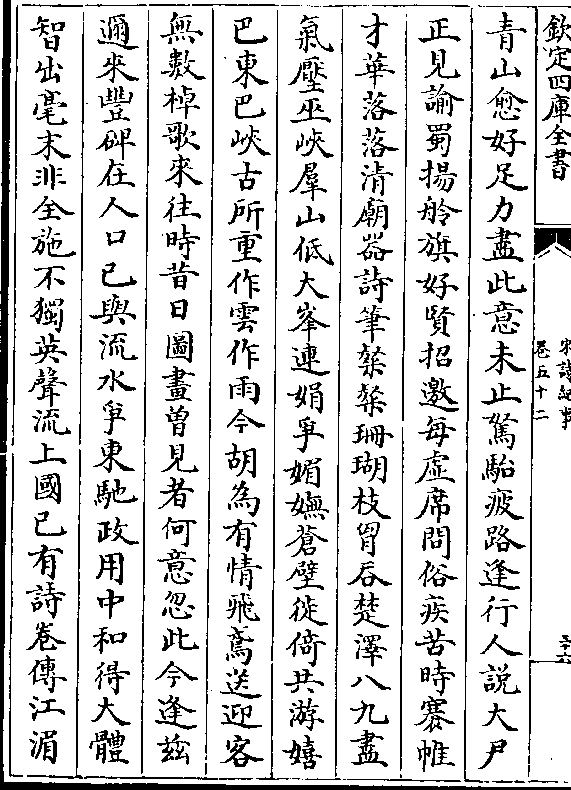 欽定四庫全書
宋詩紀事
卷五十二
三十六
青山愈好足力盡此意未止駑駘疲路逢行人說大尹
正見諭蜀揚舲旗好賢招邀每虛席問俗疾苦時褰帷
才華落落清廟器詩筆粲粲珊瑚枝胷吞楚澤八九盡
氣壓巫峽羣山低大峯連娟爭媚嫵蒼壁徙倚共游嬉
巴東巴峽古所重作雲作雨今胡為有情飛鳶送迎客
無數棹歌來往時昔日圖畫曽見者何意忽此今逢兹
邇來豐碑在人口已與流水爭東馳政用中和得大體
智出毫末非全施不獨英聲流上國已有詩卷傳江湄